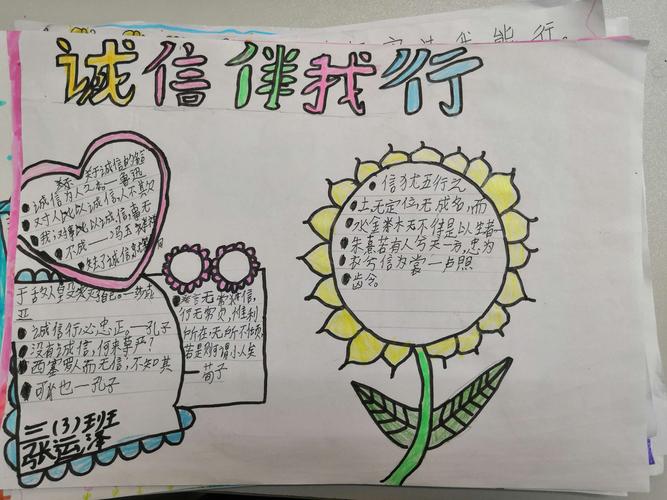 诚信伴我行
关于诚信的名
诚信为人之本——鲁迅
对人以诚信，人不欺
我，对事以诚信，事无
不成——冯玉祥
失去了诚信
信犹五行之
土无定位无成名，而
水金木无不待是以生者——
朱熹若有人兮天一方，忠为
衣兮信为裳——卢照
龄
言无常信，
行无常贞，惟利
所在无所不倾，
若是则可谓小人矣
——荀子
亚
诚信行必忠正。——孔子
没有诚信，何来尊严？
西塞罗人而无信，不知其
可也——孔子
三（3）班
张运泽